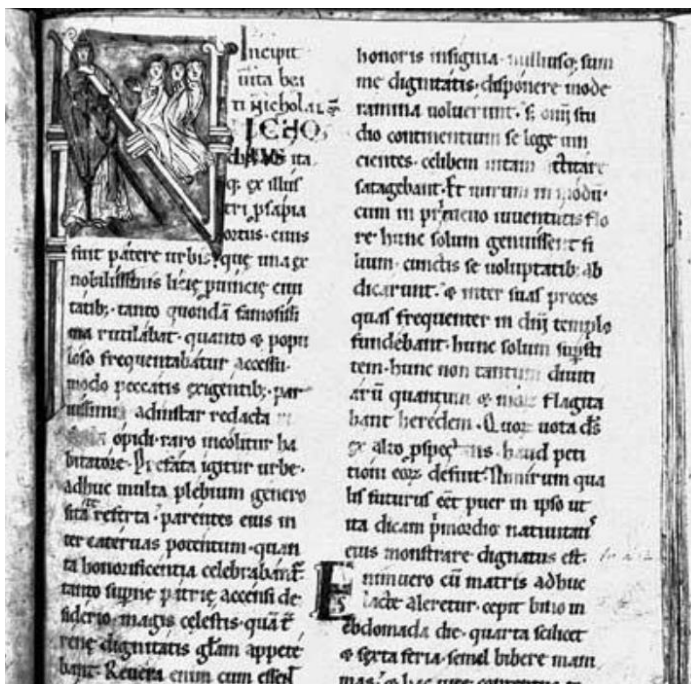 Incipit
uita bea
ti Nicholai
ICHO,
LAVS ita
q; ex illus
tri psapia
ortus. ciuis
fuit patere urbis. que una ex
nobilissimis licie puincie ciui
tatib;. tanto quondā famosissi
ma rutilabat. quanto & popu
loso frequentabatur accessu.
modo peccatis exigentib;. par
uissimi adinstar redacta
opidi. raro incolitur ha
bitatore. Prefata igitur urbe.
adhuc multa plebium genero
sitate referta. parentes eius in
ter cateruas potentum. quan
ta honorificentia celebrabant.
tanto supne patrie accensi de
siderio. magis celestis. quā t̄
rene dignitatis glam appete
bant. Reuera enim cum essent
honoris insignia. nulliusq; sum
me dignitatis. disponere mode
ramina uoluerunt. s; omi stu
dio continentium se lege uin
cientes. celibem uitam actitare
satagebant. Et mirum in modū.
cum in primeuo iuuentutis flo
re hunc solum genuissent fi
lium. cunctis se uoluptatib; ab
dicarunt. & inter suas preces
quas frequenter in dn̄i templo
fundebant. hunc solum supsti
tem. hunc non tantum diuiti
arū quantum & flagita
bant heredem. Quor uota ds̄
ex alto pspectans. haud peti
tioni eor defuit. Nimirum qua
lis futurus eēt puer in ipso ut
ita dicam pmordio natiuitatis
eius monstrare dignatus est.
Enimuero cū matris adhuc
lacte aleretur. cepit bino in
ebdomada die. quarta scilicet
& sexta feria. semel bibere mam
mas. & hac uice contentus